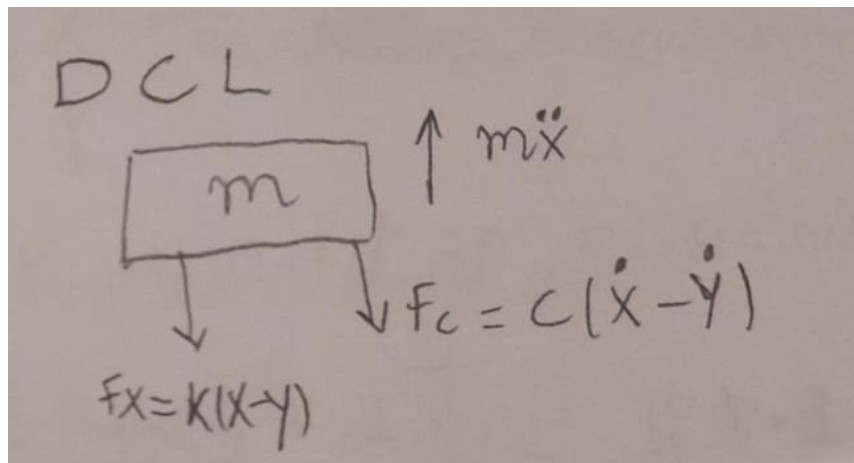 DCL
m
mẍ
Fc = C(ẋ-ẏ)
Fx=K(x-y)